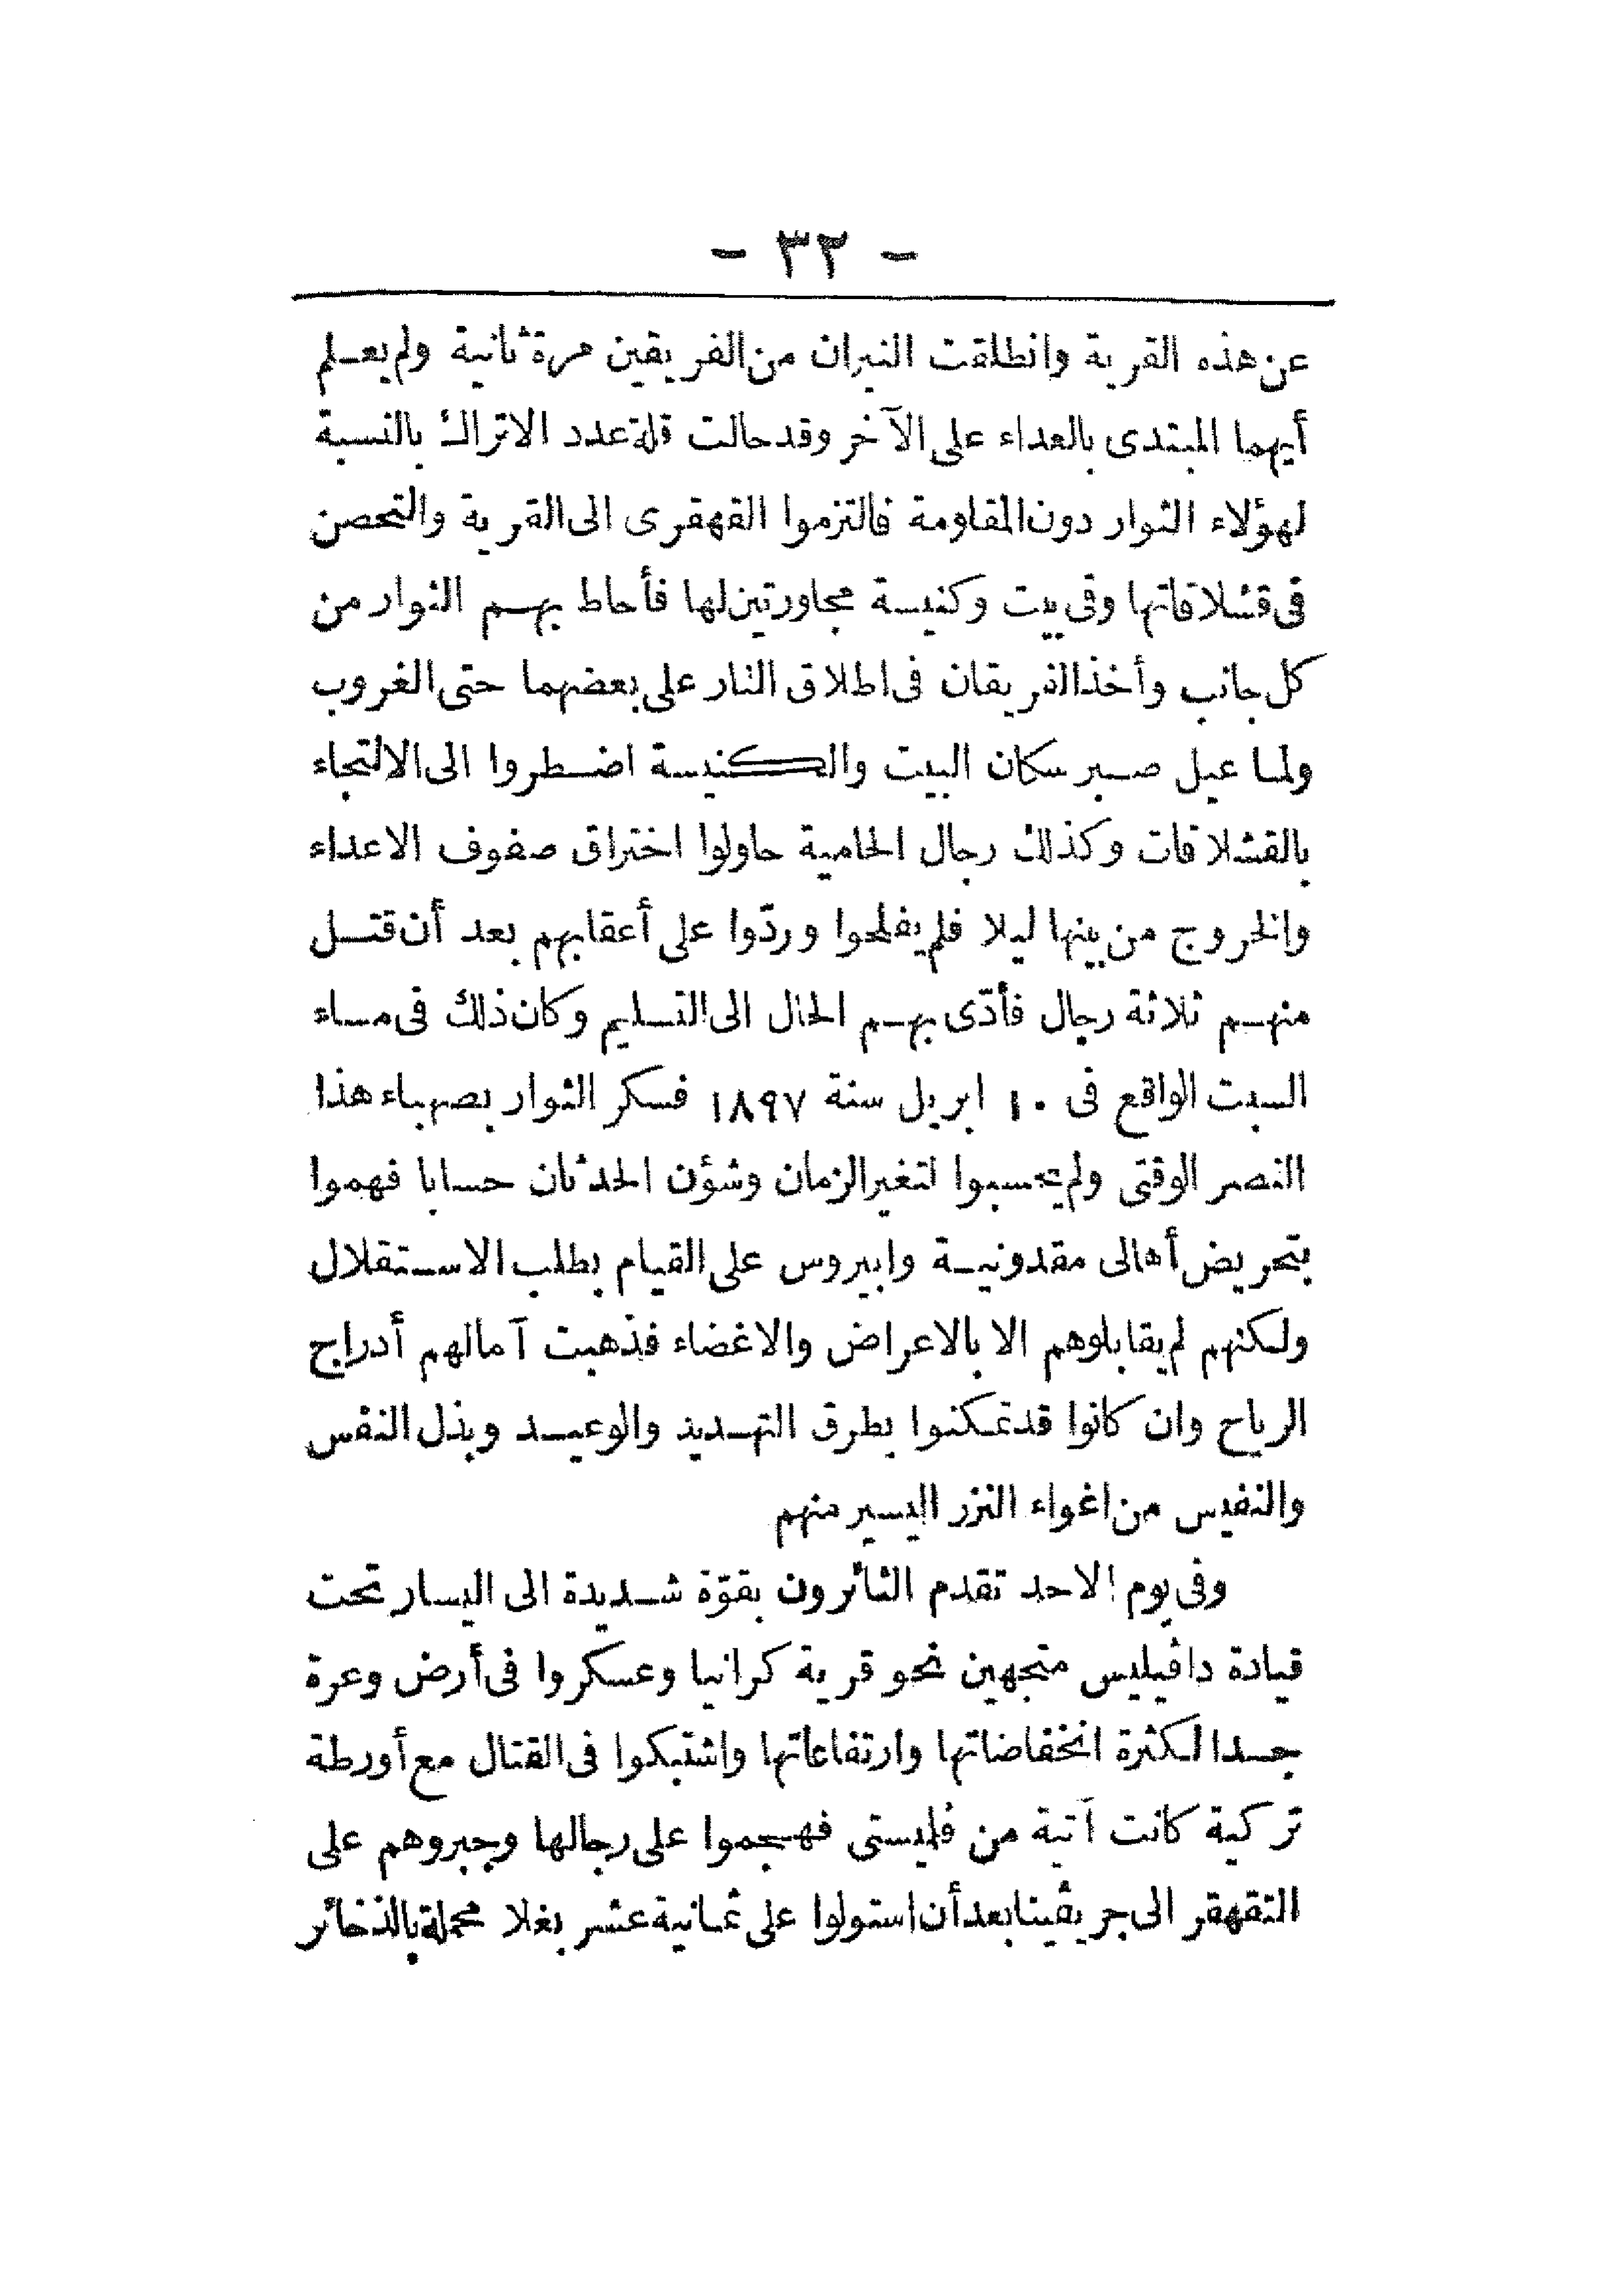 - ٣٢ -
عن هذه القرية وانطلقت النيران من الفريقين مرة ثانية ولم يعلم
أيهما المبتدى بالعداء على الآخر وقد حالت قلة عدد الاتراك بالنسبة
لهؤلاء الثوار دون المقاومة فالتزموا القهقرى الى القرية والتحصن
فى قشلاقاتها وفى بيت وكنيسة مجاورتين لها فأحاط بهم الثوار من
كل جانب وأخذ الفريقان فى اطلاق النار على بعضهما حتى الغروب
ولما عيل صبر سكان البيت والكنيسة اضطروا الى الالتجاء
بالقشلاقات وكذلك رجال الحامية حاولوا اختراق صفوف الاعداء
والخروج من بينها ليلا فلم يفلحوا وردّوا على أعقابهم بعد أن قتل
منهم ثلاثة رجال فأدّى بهم الحال الى التسليم وكان ذلك فى مساء
السبت الواقع فى ١٠ ابريل سنة ١٨٩٧ فسكر الثوار بصهباء هذا
النصر الوقتى ولم يحسبوا لتغير الزمان وشؤن الحدثان حسابا فهموا
بتحريض أهالى مقدونية وابيروس على القيام بطلب الاستقلال
ولكنهم لم يقابلوهم الا بالاعراض والاغضاء فذهبت آمالهم أدراج
الرياح وان كانوا قد تمكنوا بطرق التهديد والوعيد وبذل النفس
والنفيس من اغواء النزر اليسير منهم
وفى يوم الاحد تقدم الثائرون بقوّة شديدة الى اليسار تحت
قيادة داڤيليس متجهين نحو قرية كرانيا وعسكروا فى أرض وعرة
جدا لكثرة انخفاضاتها وارتفاعاتها واشتبكوا فى القتال مع أورطة
تركية كانت آتية من فليستى فهجموا على رجالها وجبروهم على
التقهقر الى جريڤينا بعد أن استولوا على ثمانية عشر بغلا محملة بالذخائر